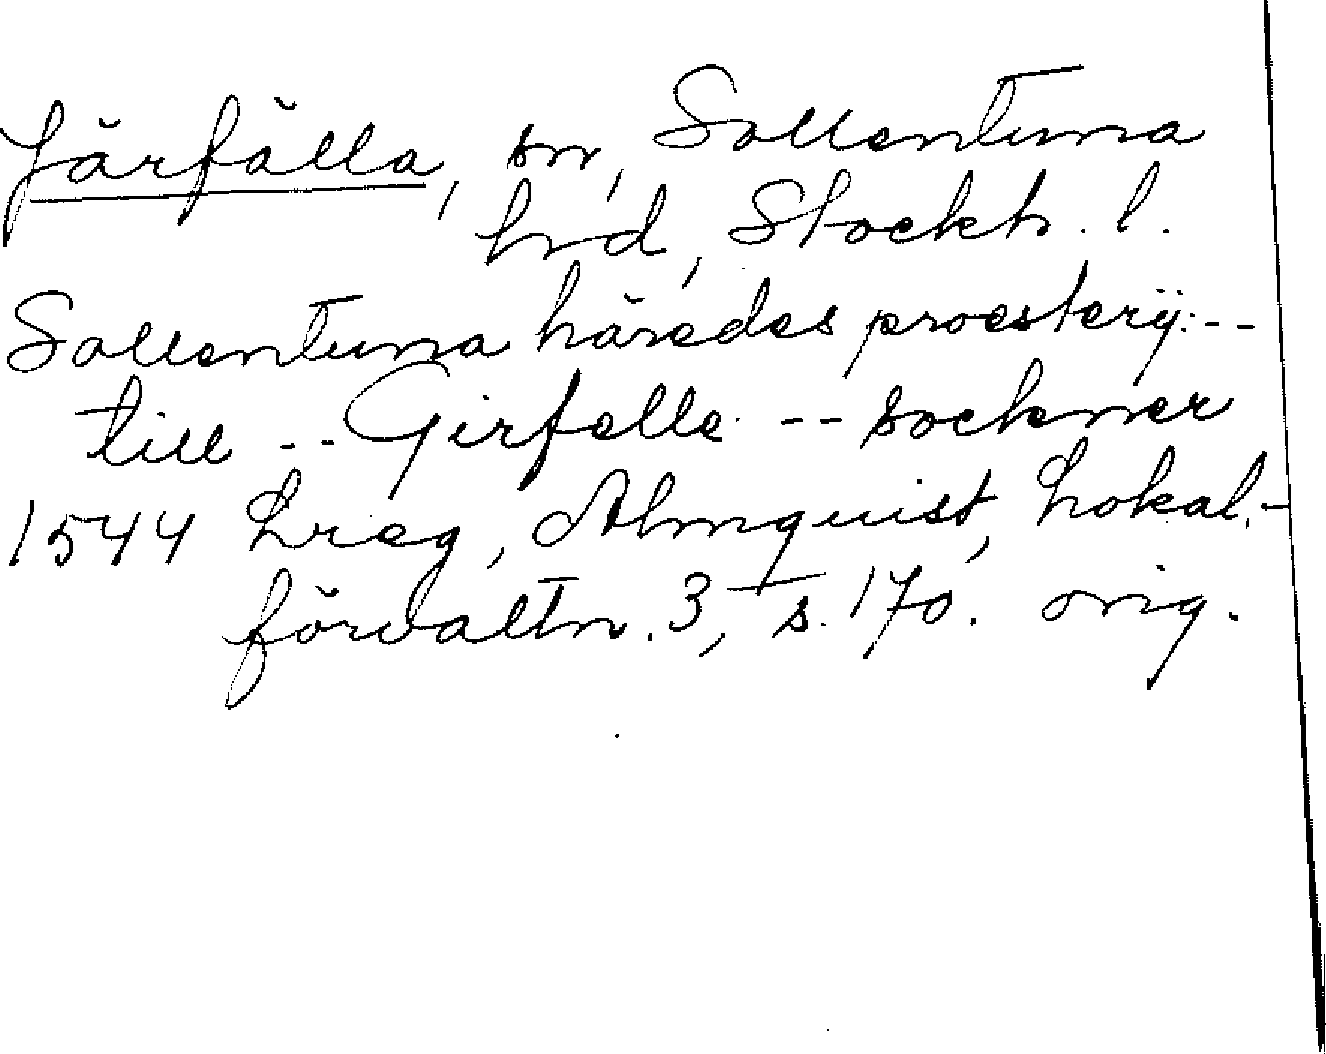 Järfälla, sn, Sollentuna
hrd, Stockh. l.
Sollentuna häredes proesterij: --
till -- Girfelle -- sockner
1544 Lreg, Almquist, Lokal-
förvaltn. 3, s. 170. orig.